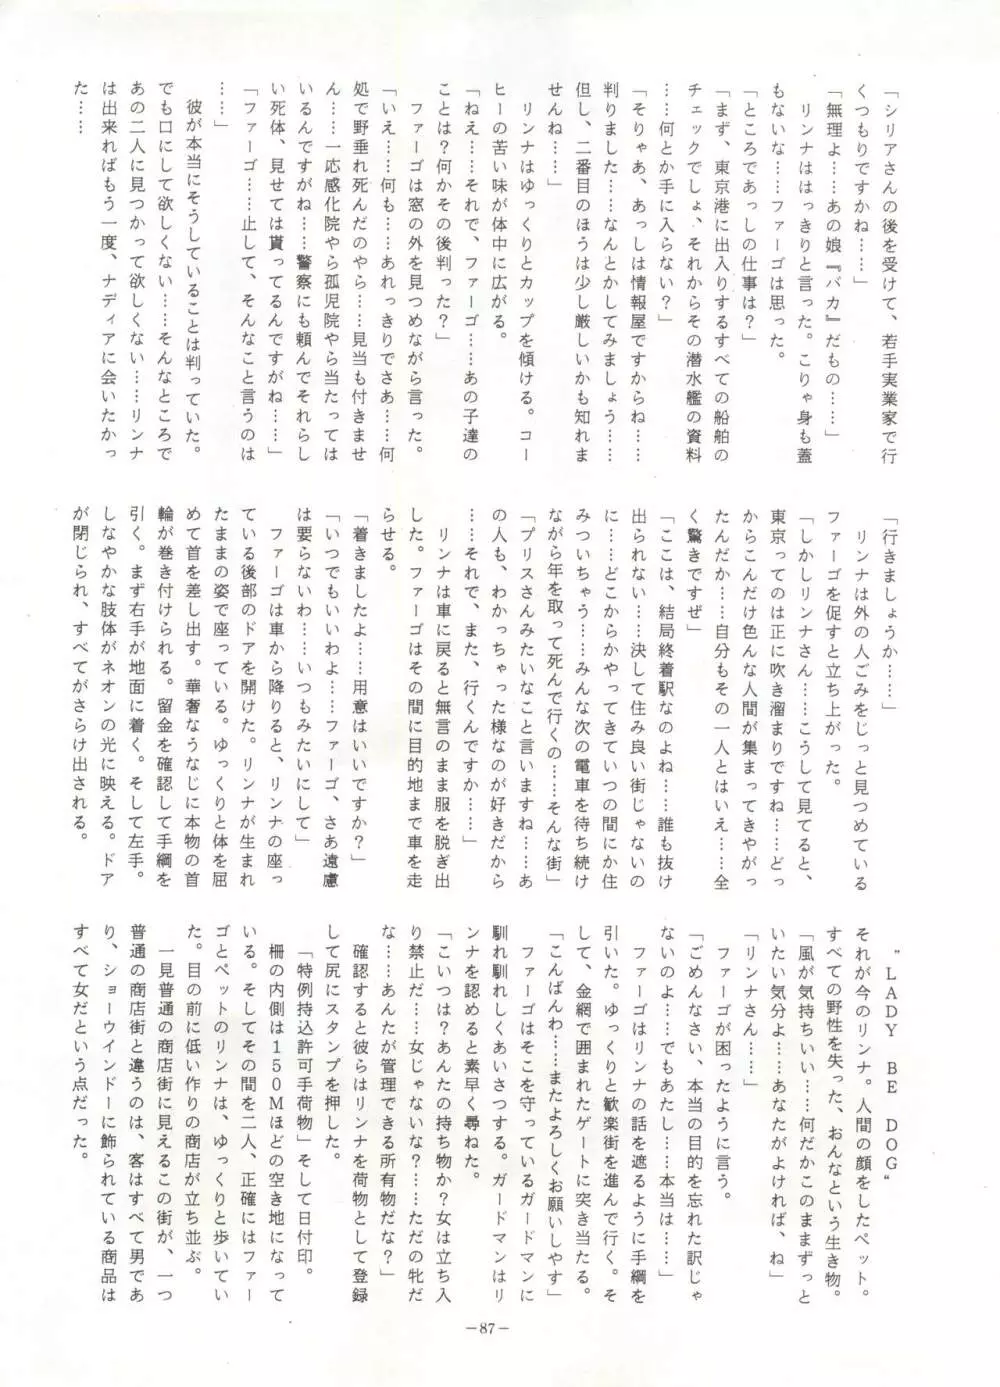 「シリアさんの後を受けて、若手実業家で行
くつもりですかね……」
「無理よ……あの娘『バカ』だもの……」
　リンナははっきりと言った。こりゃ身も蓋
もないな……ファーゴは思った。
「ところであっしの仕事は？」
「まず、東京港に出入りするすべての船舶の
チェックでしょ、それからその潜水艦の資料
……何とか手に入らない？」
「そりゃあ、あっしは情報屋ですからね……
判りました……なんとかしてみましょう……
但し、二番目のほうは少し厳しいかも知れま
せんね……」
　リンナはゆっくりとカップを傾ける。コー
ヒーの苦い味が体中に広がる。
「ねえ……それで、ファーゴ……あの子達の
ことは？何かその後判った？」
　ファーゴは窓の外を見つめながら言った。
「いえ……何も……あれっきりでさあ……何
処で野垂れ死んだのやら……見当も付きませ
ん……一応感化院やら孤児院やら当たっては
いるんですがね……警察にも頼んでそれらし
い死体、見せては貰ってるんですがね……」
「ファーゴ……止して、そんなこと言うのは
……」
　彼が本当にそうしていることは判っていた。
でも口にして欲しくない……そんなところで
あの二人に見つかって欲しくない……リンナ
は出来ればもう一度、ナディアに会いたかっ
た……
「行きましょうか……」
　リンナは外の人ごみをじっと見つめている
ファーゴを促すと立ち上がった。
「しかしリンナさん……こうして見てると、
東京ってのは正に吹き溜まりですね……どっ
からこんだけ色んな人間が集まってきやがっ
たんだか……自分もその一人とはいえ……全
く驚きですぜ」
「ここは、結局終着駅なのよね……誰も抜け
出られない……決して住み良い街じゃないの
に……どこからかやってきていつの間にか住
みついちゃう……みんな次の電車を待ち続け
ながら年を取って死んで行くの……そんな街」
「プリスさんみたいなこと言いますね……あ
の人も、わかっちゃった様なのが好きだから
……それで、また、行くんですか……」
　リンナは車に戻ると無言のまま服を脱ぎ出
した。ファーゴはその間に目的地まで車を走
らせる。
「着きましたよ……用意はいいですか？」
「いつでもいいわよ……ファーゴ、さあ遠慮
は要らないわ……いつもみたいにして」
　ファーゴは車から降りると、リンナの座っ
ている後部のドアを開けた。リンナが生まれ
たままの姿で座っている。ゆっくりと体を屈
めて首を差し出す。華奢なうなじに本物の首
輪が巻き付けられる。留金を確認して手綱を
引く。まず右手が地面に着く。そして左手。
しなやかな肢体がネオンの光に映える。ドア
が閉じられ、すべてがさらけ出される。
“LADY BE DOG“
それが今のリンナ。人間の顔をしたペット。
すべての野性を失った、おんなという生き物。
「風が気持ちいい……何だかこのままずっと
いたい気分よ……あなたがよければ、ね」
「リンナさん……」
　ファーゴが困ったように言う。
「ごめんなさい、本当の目的を忘れた訳じゃ
ないのよ……でもあたし……本当は……」
　ファーゴはリンナの話を遮るように手綱を
引いた。ゆっくりと歓楽街を進んで行く。そ
して、金網で囲まれたゲートに突き当たる。
「こんばんわ……またよろしくお願いしやす」
　ファーゴはそこを守っているガードマンに
馴れ馴れしくあいさつする。ガードマンはリ
ンナを認めると素早く尋ねた。
「こいつは？あんたの持ち物か？女は立ち入
り禁止だ……女じゃないな？……ただの牝だ
な……あんたが管理できる所有物だな？」
　確認すると彼らはリンナを荷物として登録
して尻にスタンプを押した。
「特例持込許可手荷物」そして日付印。
　柵の内側は１５０Ｍほどの空き地になって
いる。そしてその間を二人、正確にはファー
ゴとペットのリンナは、ゆっくりと歩いてい
た。目の前に低い作りの商店が立ち並ぶ。
　一見普通の商店街に見えるこの街が、一つ
普通の商店街と違うのは、客はすべて男であ
り、ショーウインドーに飾られている商品は
すべて女だという点だった。
－87－